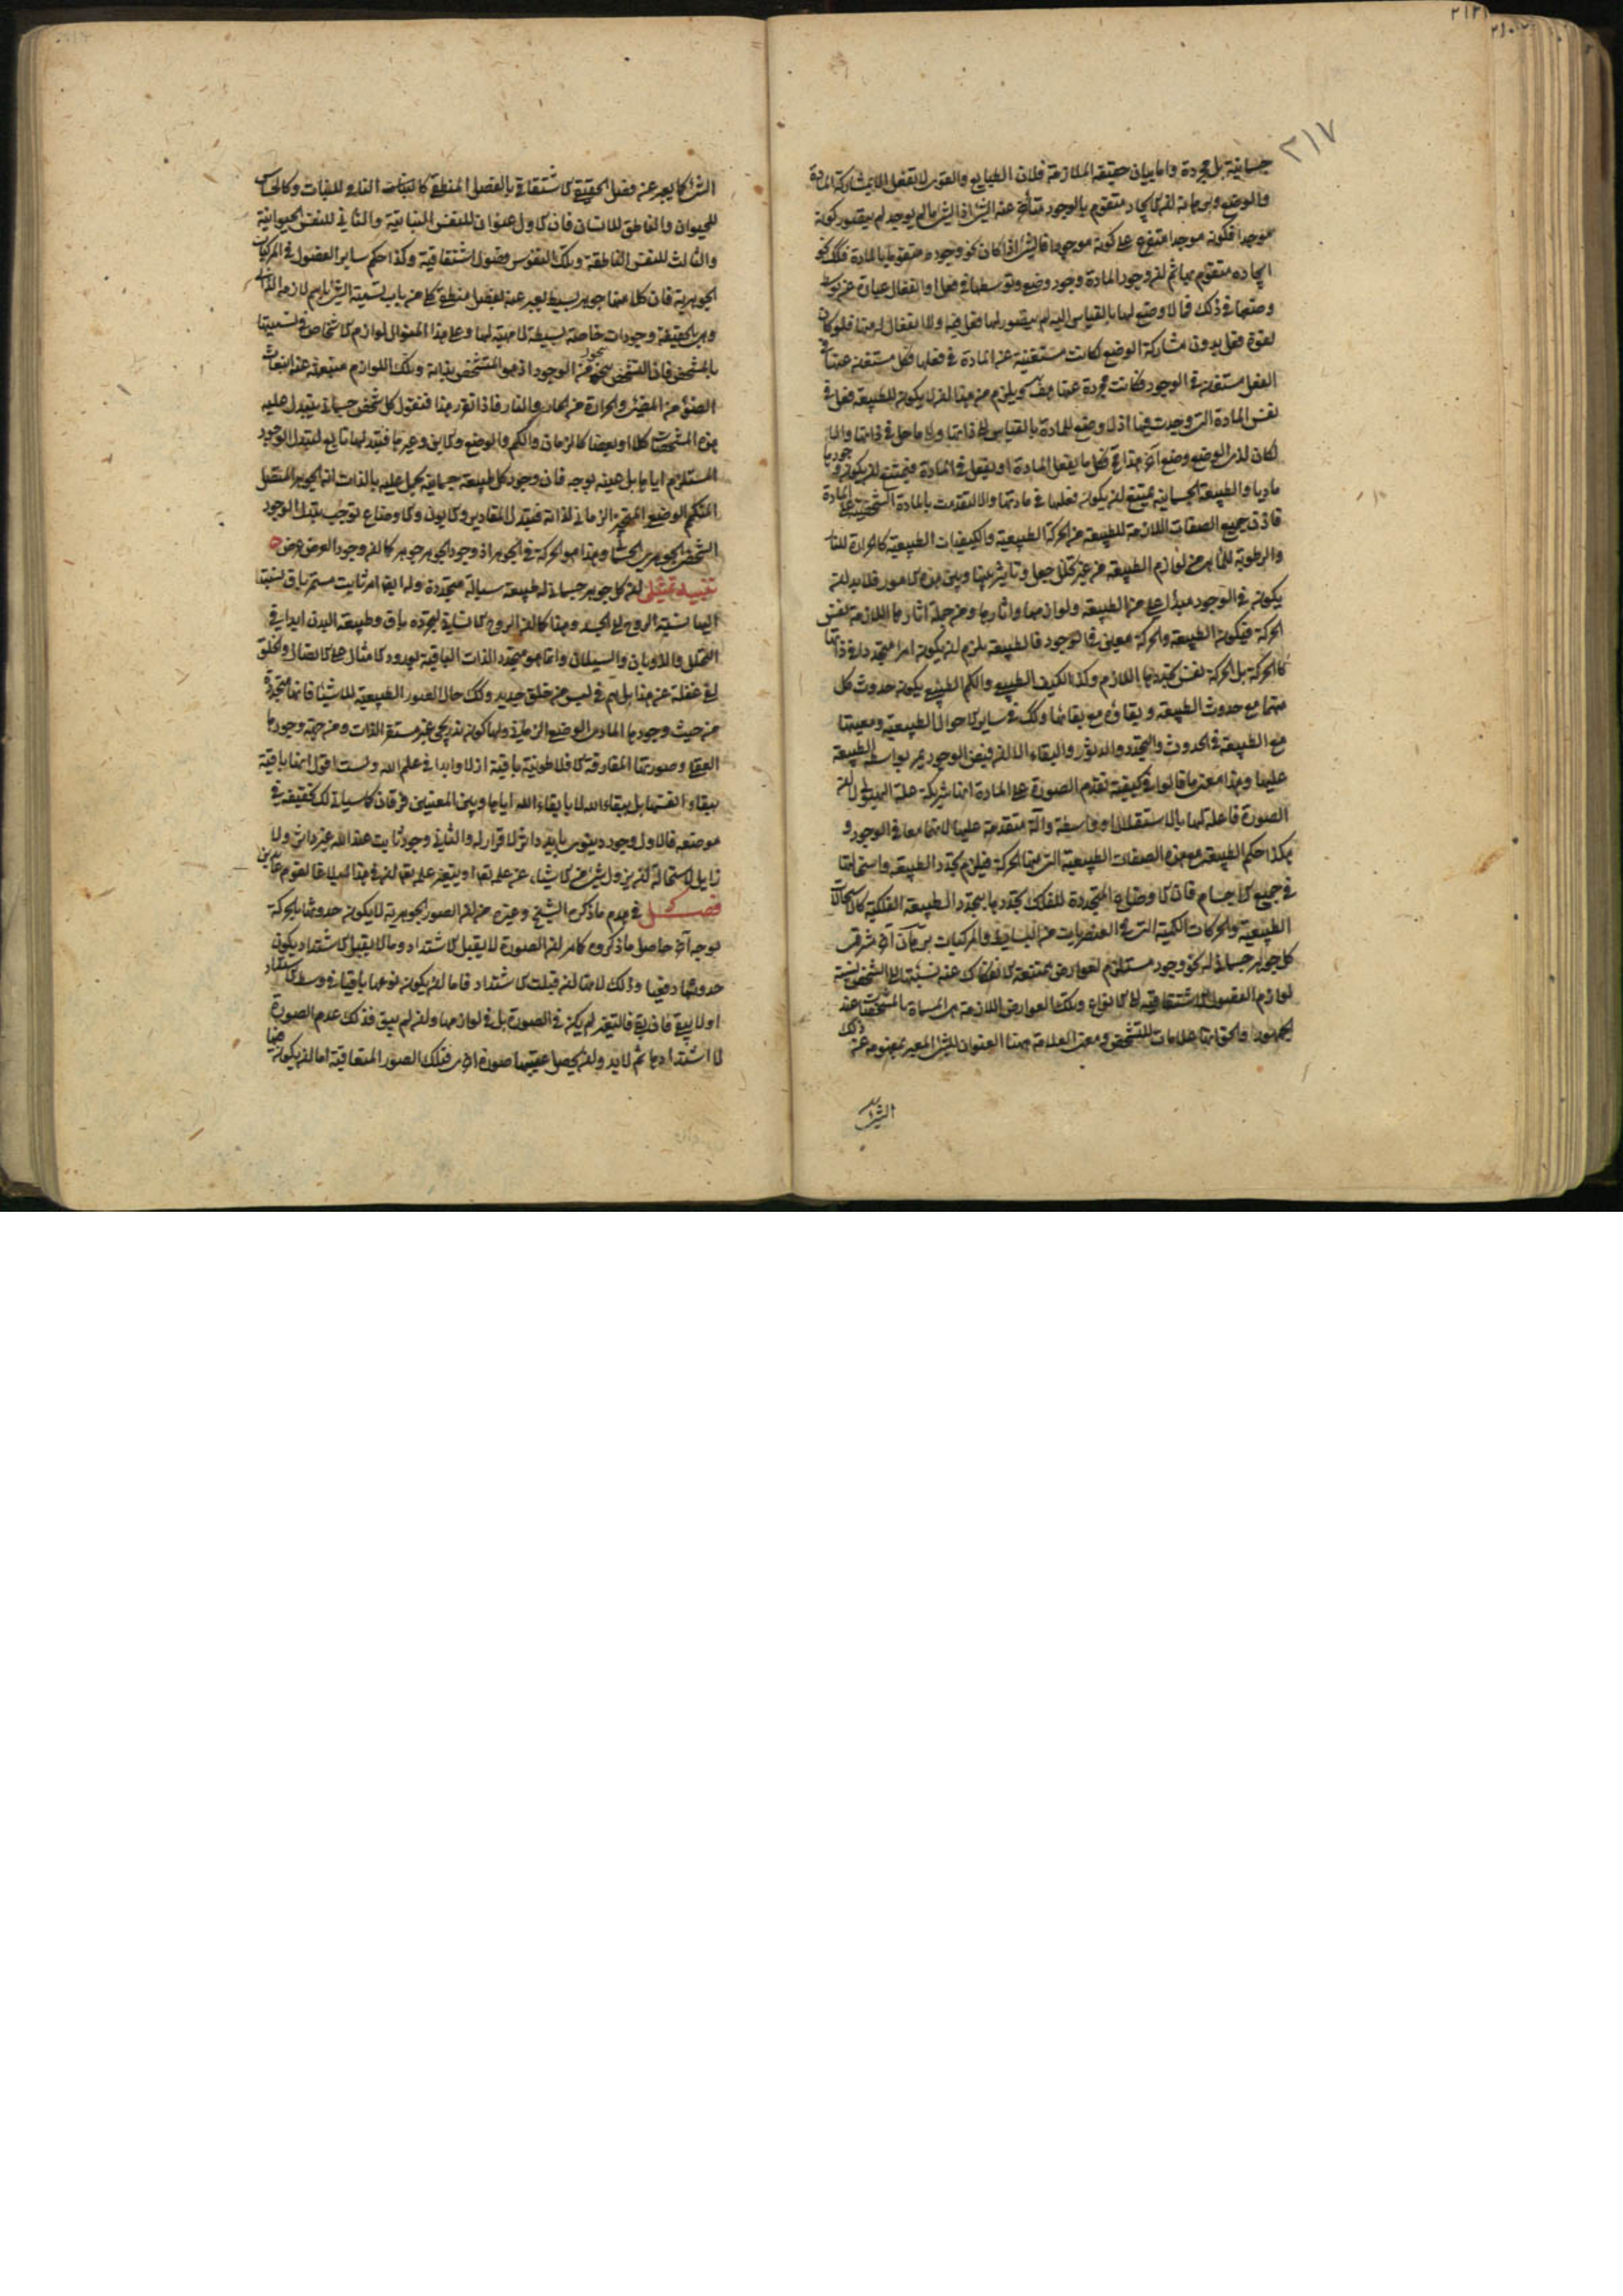 ٢١٢
٢١٧
جسمانية بل مجردة واما بيان حقيقة الملازمة فلان الطبايع والقوى لا يفعل الا بمشاركة المادة
والوضع وبرهانه ان الايجاد متقوم بالوجود متأخر عنه اذ الشئ ما لم يوجد لم يتصور كونه
موجدا فكونه موجدا متفرع على كونه موجودا فالشئ اذا كان نحو وجوده متقوما بالمادة فكذلك نحو
ايجاده متقوم بها ثم ان وجود المادة وجود وضعى وتوسطها فى فعل او انفعال عبارة عن توسط
وضعها فى ذلك فما لا وضع لها بالقياس اليه لم يتصور لها فعل فيه ولا انفعال له منها فلو كان
لقوة فعل بدون مشاركة الوضع لكانت مستغنية عن المادة فى فعلها وكل مستغنية عنها فى
الفعل مستغنية فى الوجود فكانت مجردة عنها هف ويلزم من هذا ان لا يكون للطبيعة فعل فى
نفس المادة التى وجدت فيها اذ لا وضع للمادة بالقياس الى ذاتها ولا ما حل فى ذاتها والا
لكان لذى الوضع وضع آخر هذا مح فكل ما يفعل المادة او يفعل فى المادة فيمتنع ان يكون وجودها
ماديا والطبيعة الجسمانية يمتنع ان يكون فعلها فى مادتها والا لتقدمت بالمادة الشخصية على المادة
فاذن جميع الصفات اللازمة للطبيعة من الحركة الطبيعية والكيفيات الطبيعية كالحرارة للنار
والرطوبة للماء من لوازم الطبيعة من غير تخلل جعل وتأثير بينها وبين هذه الامور فلا بد ان
يكون فى الوجود مبدأ اعلى من الطبيعة ولوازمها وآثارها ومن جملة آثارها اللازمة نفس
الحركة فيكون الطبيعة والحركة معين فى الوجود فالطبيعة يلزم ان يكون امرا متجددا فى ذاتها
كالحركة بل الحركة نفس تجددها اللازم وكذا الكيف الطبيعى والكم الطبيعى يكون حدوث كل
منهما مع حدوث الطبيعة وبقاؤه مع بقائها وكذا فى ساير الاحوال الطبيعية ومعيتها
مع الطبيعة فى الحدوث والتجدد والدثور والبقاء الا ان فيض الوجود يمر بواسطة الطبيعة
عليها وهذا معنى ما قالوا فى كيفية تقدم الصورة على المادة انها شريكة علة الهيولى لا ان
الصورة فاعلة لها بالاستقلال او واسطة وآلة متقدمة عليها لانهما معا فى الوجود و
هكذا حكم الطبيعة مع هذه الصفات الطبيعية التى منها الحركة فيلزم تجدد الطبيعة واستحالتها
فى جميع الاجسام فان الاوضاع المتجددة للفلك تجددها بتجدد الطبيعة الفلكية كالاستحالات
الطبيعية والحركات الكمية التى فى العنصريات من البسايط والمركبات برهان آخر مشرقى
كل جوهر جسمانى له نحو وجود مستلزم لعوارض ممتنعة الانفكاك عنه نسبتها الى الشخص نسبة
لوازم الفصول الاشتقاقية الى الانواع وتلك العوارض اللازمة هى المسماة بالمشخصات عند
الجمهور والحق انها علامات للتشخص ومعنى العلامة ههنا العنوان للشئ المعبر بمفهومه عن ذلك
الشئ
الشئ كما يعبر عن فصل الحقيقى الاشتقاقى بالفصل المنطقى كالنبات النامى للنبات وكالحساس
للحيوان والناطق للانسان فان الاول عنوان للنفس النباتية والثانى للنفس الحيوانية
والثالث للنفس الناطقة وتلك النفوس فصول اشتقاقية وكذا حكم ساير الفصول فى المركبات
الجوهرية فان كلا منها جوهر بسيط يعبر عنه بفصل منطقى كلى من باب تسمية الشئ باسم لازمه الذاتى
وهى بالحقيقة وجودات خاصة بسيطة لا مهية لها وعلى هذا المنوال لوازم الاشخاص فى تسميتها
بالمشخص فان التشخص بنحو من الوجود اذ هو المتشخص بذاته وتلك اللوازم منبعثة عنه انبعاث
الضوء من المضئ والحرارة من الحار والنار فاذا تقرر هذا فنقول كل شخص جسمانى يتبدل عليه
هذه المشخصات كلا او بعضا كالزمان والكم والوضع والاين وغيرها فتبدلها تابع لتبدل الوجود
المستلزم اياها بل عينه بوجه فان وجود كل طبيعة جسمانية يحمل عليه بالذات انه الجوهر المتصل
المتكمم الوضعى المتحيز الزمانى لذاته فتبدل المقادير والايون والاوضاع يوجب تبدل الوجود
الشخصى الجوهرى الجسمانى وهذا هو الحركة فى الجوهر اذ وجود الجوهر جوهر كما ان وجود العرض عرض
تنبيه تمثيلى ان كل جوهر جسمانى له طبيعة سيالة متجددة وله ايضا امر ثابت مستمر باق نسبته
اليها نسبة الروح الى الجسد وهذا كما ان الروح الانسانى لتجرده باق وطبيعة البدن ابدا فى
التحلل والذوبان والسيلان وانما هو متجدد الذات الباقية بورود الامثال على الاتصال والخلق
لفى غفلة عن هذا بل هم فى لبس من خلق جديد وكذلك حال الصور الطبيعية للاشياء فانها متجددة
من حيث وجودها المادى الوضعى الزمانى ولها كون تدريجى غير مستقر الذات ومن حيث وجودها
العقلى وصورتها المفارقة الافلاطونية باقية ازلا وابدا فى علم الله ولست اقول انها باقية
ببقاء انفسها بل ببقاء الله لا بابقاء الله اياها وبين المعنيين فرقان كما سيأتى لك تحقيقه فى
موضعه فالاول وجود دنيوى بايد داثر لا قرار له والثانى وجود ثابت عند الله غير داثر ولا
زايل لاستحالة ان يزول شئ من الاشياء عن علمه تعالى او يتغير علمه تعالى ان فى هذا لبلاغا لقوم عابدين
فصل فى هدم ما ذكره الشيخ وغيره من ان الصور الجوهرية لا يكون حدوثها بالحركة
بوجه آخر حاصل ما ذكروه كما مر ان الصورة لا يقبل الاشتداد وما لا يقبل الاشتداد يكون
حدوثها دفعيا وذلك لانها ان قبلت الاشتداد فاما ان يكون نوعها باقيا فى وسط الاشتداد
او لا يبقى فان بقى فالتغير لم يكن فى الصورة بل فى لوازمها وان لم يبق فذلك عدم الصورة
لا اشتدادها ثم لا بد وان يحصل عقيبها صورة اخرى فتلك الصور المتعاقبة اما ان يكون فيها